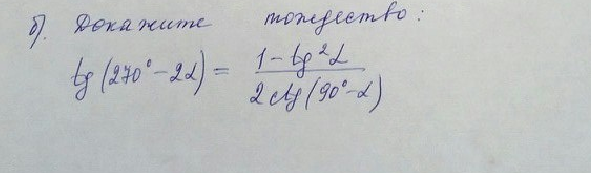 б). Докажите тождество:
tg(270° - 2α) = (1 - tg²α) / (2 ctg(90° - α))